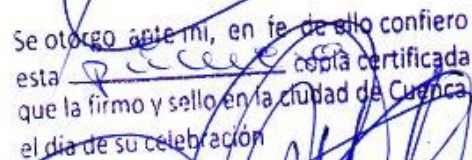 Se otorgo ante mi, en fe de ello confiero
esta Primera copia certificada
que la firmo y sello en la ciudad de Cuenca
el dia de su celebración